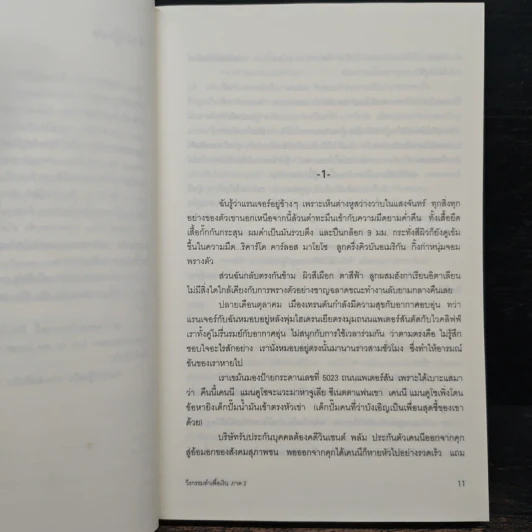 -1-
ฉันรู้ว่าแรนเจอร์อยู่ข้างๆ เพราะเห็นต่างหูสว่างวาบในแสงจันทร์ ทุกสิ่งทุก
อย่างของตัวเขานอกเหนือจากนี้ล้วนดำทะมึนเข้ากับความมืดยามค่ำคืน ทั้งเสื้อยืด
เสื้อกั๊กกันกระสุน ผมดำเป็นมันรวบตึง และปืนกล็อก 9 มม. กระทั่งสีผิวก็ยังดูเข้ม
ขึ้นในความมืด ริคาร์โด คาร์ลอส มาโยโซ ลูกครึ่งคิวบันอเมริกัน กิ้งก่าหนุ่มจอม
พรางตัว
ส่วนฉันกลับตรงกันข้าม ผิวสีเผือก ตาสีฟ้า ลูกผสมฮังกาเรียนอิตาเลียน
ไม่มีสิ่งใดใกล้เคียงกับการพรางตัวอย่างชาญฉลาดขณะทำงานลับยามกลางคืนเลย
ปลายเดือนตุลาคม เมืองเทรนตันกำลังมีความสุขกับอากาศอบอุ่น ทว่า
แรนเจอร์กับฉันหมอบอยู่หลังพุ่มไฮเดรนเยียตรงมุมถนนแพเตอร์สันตัดกับไวคลิฟฟ์
เราทั้งคู่ไม่รื่นรมย์กับอากาศอุ่น ไม่สนุกกับการใช้เวลาร่วมกัน ว่าตามตรงคือ ไม่รู้สึก
ชอบใจอะไรสักอย่าง เรานั่งหมอบอยู่ตรงนั้นมานานราวสามชั่วโมง ซึ่งทำให้อารมณ์
ขันของเราหายไป
เราเขม้นมองป้ายกระดานเลขที่ 5023 ถนนแพเตอร์สัน เพราะได้เบาะแสมา
ว่า คืนนี้เคนนี แมนคูโซจะแวะมาหาจูเลีย ซีเนตตาแฟนเขา เคนนี แมนคูโซเพิ่งโดน
ข้อหายิงเด็กปั๊มน้ำมันเข้าตรงหัวเข่า (เด็กปั๊มคนที่ว่าบังเอิญเป็นเพื่อนสุดซี้ของเขา
ด้วย)
บริษัทรับประกันบุคคลต้องคดีวินเซนต์ พลัม ประกันตัวเคนนีออกจากคุก
สู่อ้อมอกของสังคมสุภาพชน พอออกจากคุกได้เคนนีก็หายหัวไปอย่างรวดเร็ว แถม
วีรกรรมทำเพื่อเงิน ภาค 2
11